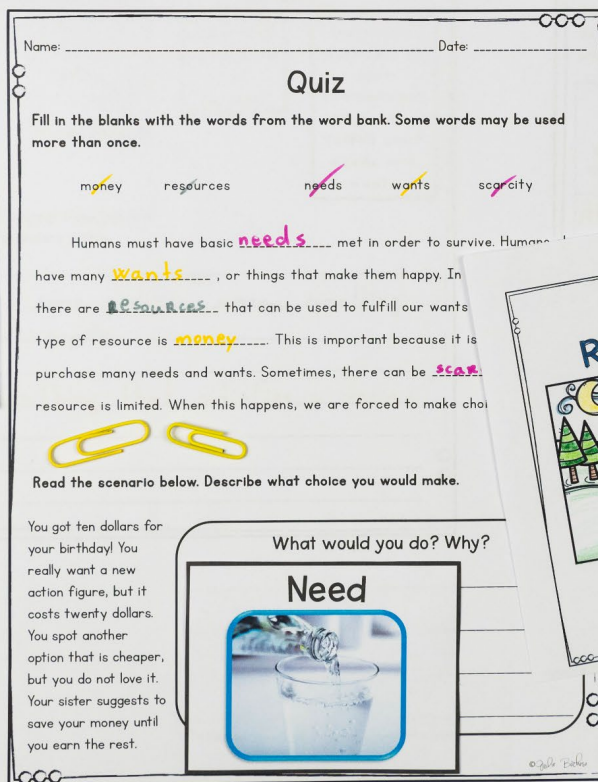 Name: Date:
Quiz
Fill in the blanks with the words from the word bank. Some words may be used
more than once.
money resources needs wants scarcity
Humans must have basic needs met in order to survive. Humans
have many wants, or things that make them happy. In
there are resources that can be used to fulfill our wants
type of resource is money. This is important because it is
purchase many needs and wants. Sometimes, there can be scar
resource is limited. When this happens, we are forced to make choi
R
Read the scenario below. Describe what choice you would make.
You got ten dollars for
your birthday! You
really want a new
action figure, but it
costs twenty dollars.
You spot another
option that is cheaper,
but you do not love it.
Your sister suggests to
save your money until
you earn the rest.
What would you do? Why?
Need